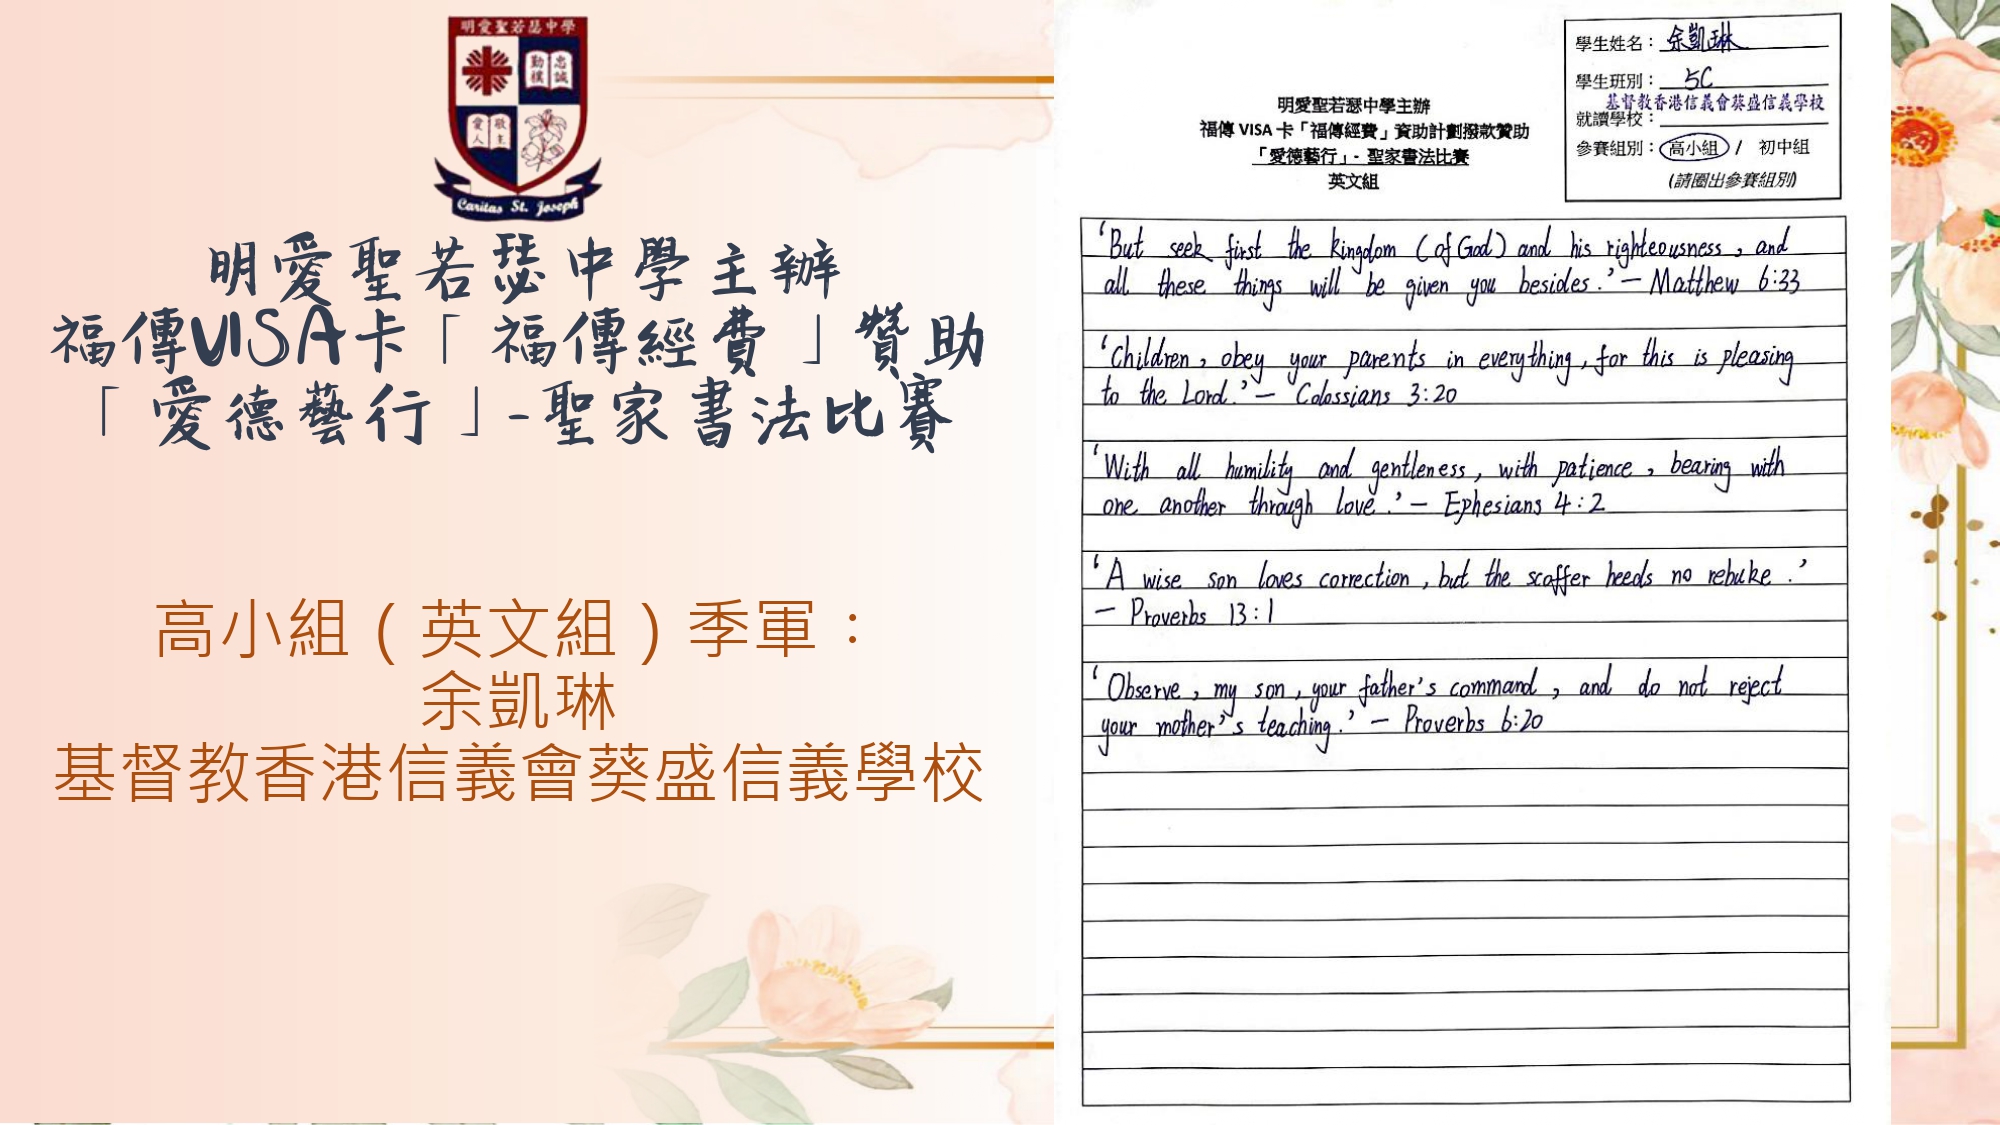 明愛聖若瑟中學
勤樸 忠誠
愛人 敬主
Caritas St. Joseph
明愛聖若瑟中學主辦
福傳VISA卡「福傳經費」贊助
「愛德藝行」-聖家書法比賽
高小組（英文組）季軍：
余凱琳
基督教香港信義會葵盛信義學校
學生姓名：余凱琳
學生班別：5C
基督教香港信義會葵盛信義學校
就讀學校：
參賽組別：高小組 / 初中組
(請圈出參賽組別)
明愛聖若瑟中學主辦
福傳 VISA 卡「福傳經費」資助計劃撥款贊助
「愛德藝行」- 聖家書法比賽
英文組
‘But seek first the kingdom (of God) and his righteousness, and
all these things will be given you besides.’ — Matthew 6:33
‘Children, obey your parents in everything, for this is pleasing
to the Lord.’ — Colossians 3:20
‘With all humility and gentleness, with patience, bearing with
one another through love.’ — Ephesians 4:2
‘A wise son loves correction, but the scoffer heeds no rebuke.’
— Proverbs 13:1
‘Observe, my son, your father’s command, and do not reject
your mother’s teaching.’ — Proverbs 6:20